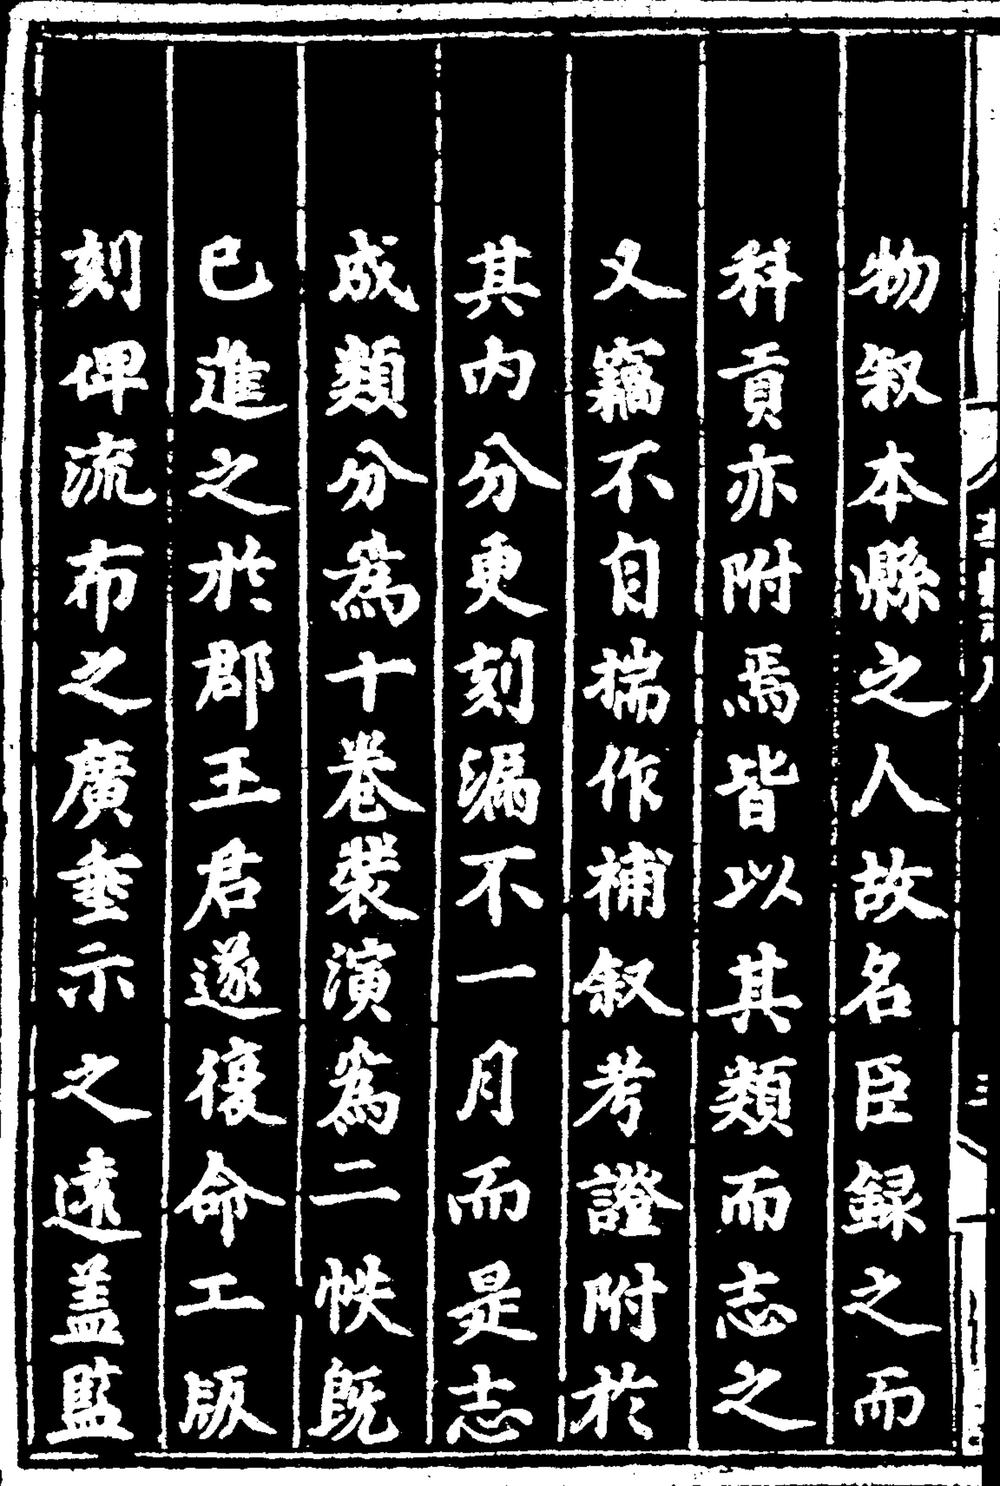 物叙本縣之人故名臣録之而
科貢亦附焉皆以其類而志之
又竊不自揣作補叙考證附於
其内分更刻漏不一月而是志
成類分為十巻装演為二帙既
已進之於郡王君遂復命工版
刻俾流布之廣垂示之遠盖監